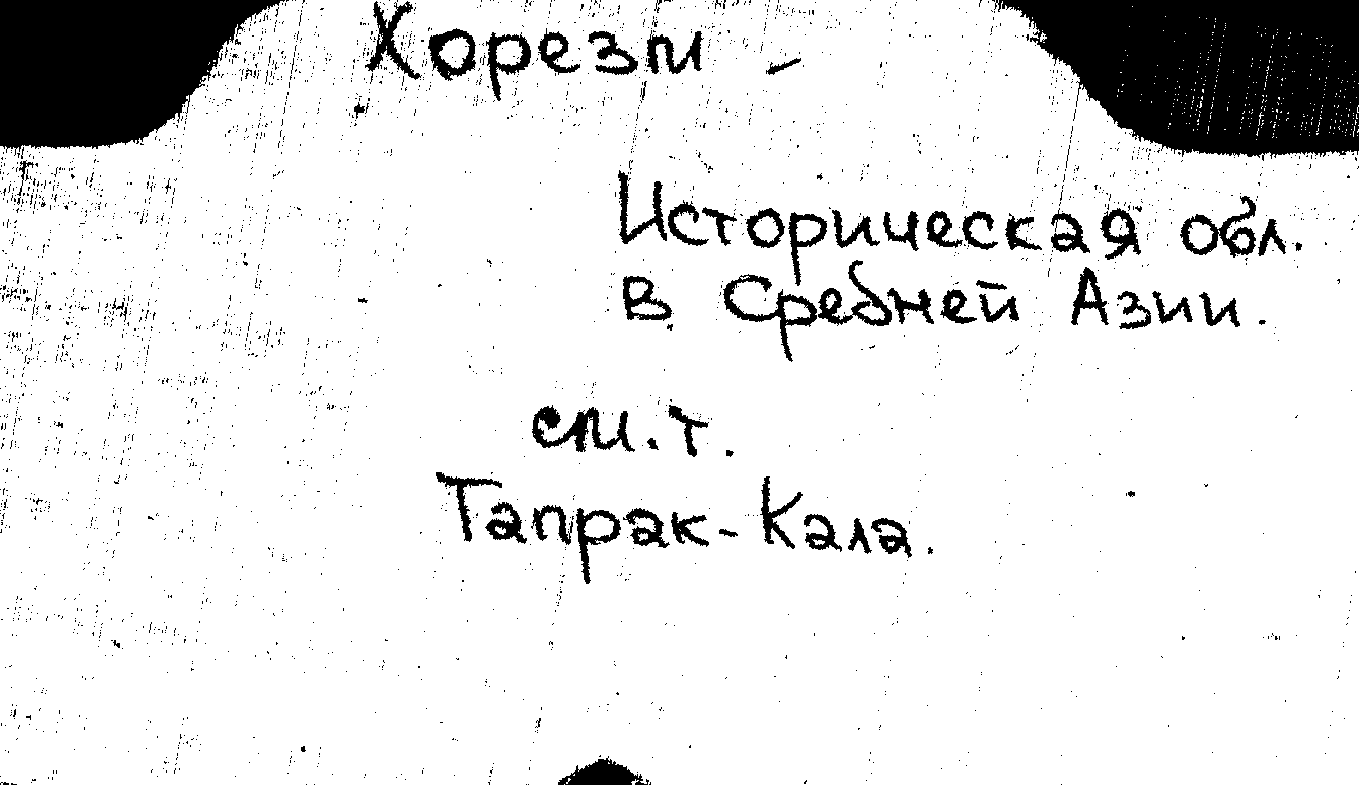 Хорезм -
Историческая обл.
в Средней Азии.
см. т.
Тапрак-Кала.